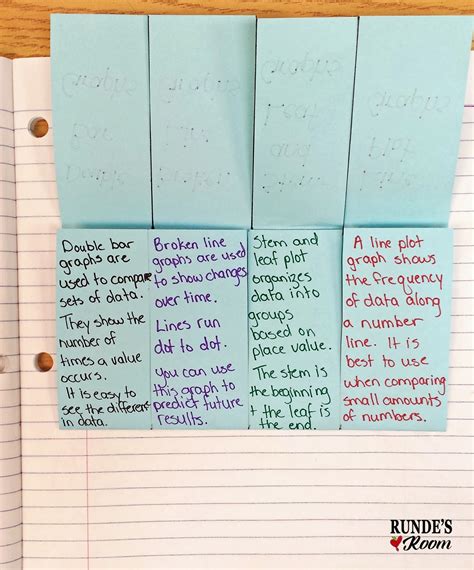 Double bar
graphs are
used to compare
sets of data.
They show the
number of
times a value
occurs.
It is easy to
see the different
in data.
Broken line
graphs are used
to show changes
over time.
Lines run
dot to dot.
You can use
this graph to
predict future
results.
Stem and
leaf plot
organizes
data into
groups
based on
place value.
The stem is
the beginning
+ the leaf is
the end.
A line plot
graph shows
the frequency
of data along
a number
line. It is
best to use
when comparing
small amounts
of numbers.
RUNDE'S
Room